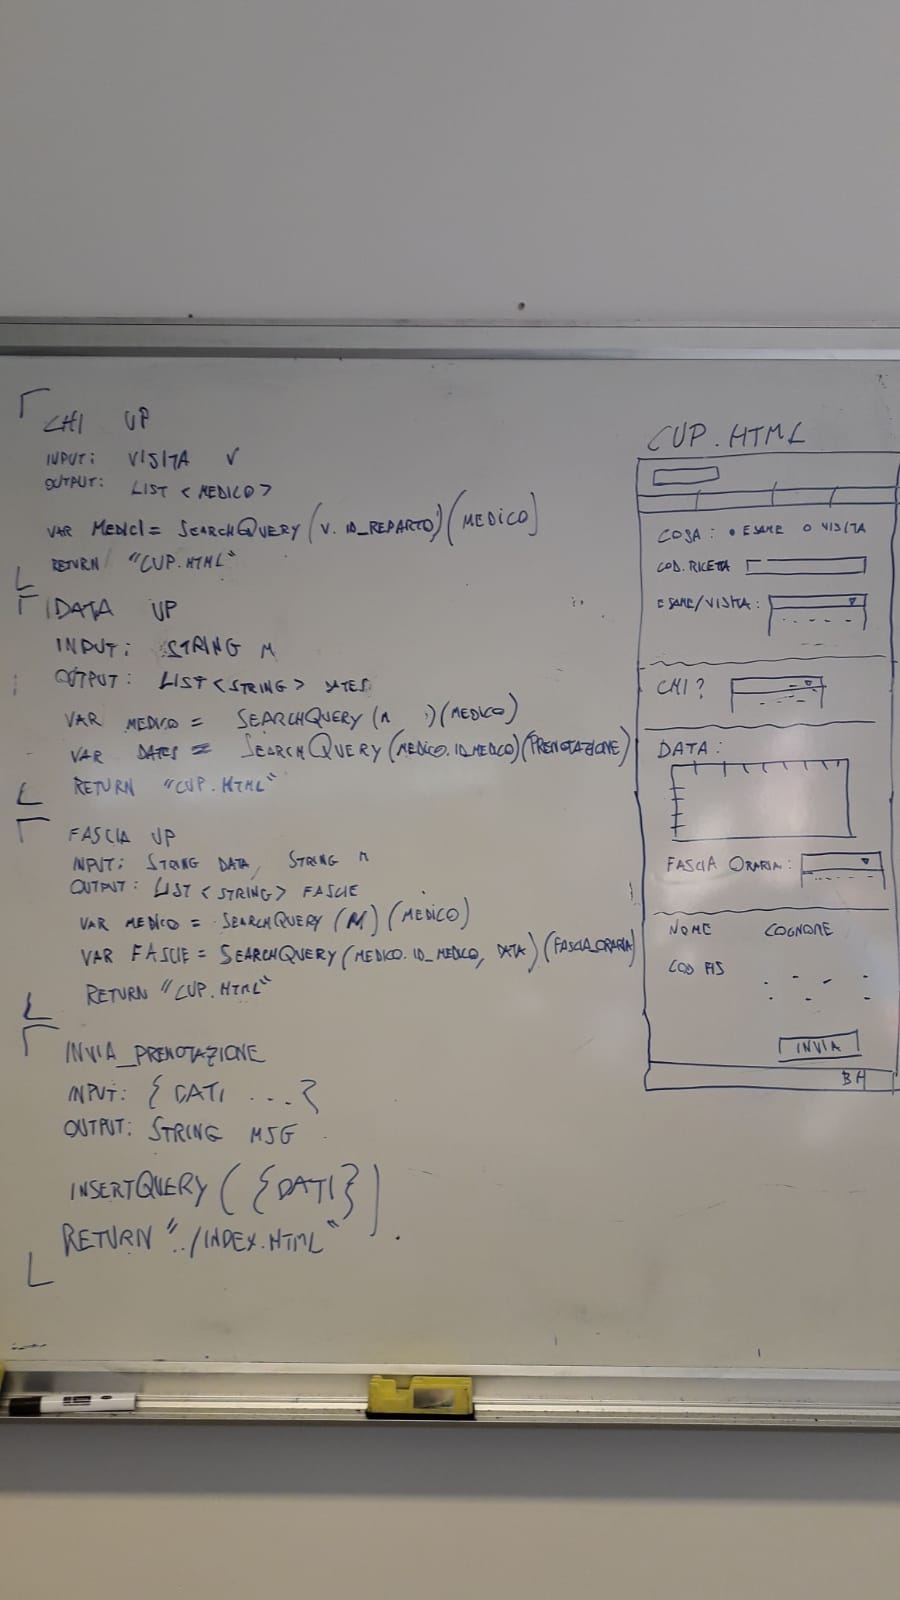 CHI UP
INPUT: VISITA V
OUTPUT: LIST <MEDICO>
VAR MEDICI = SEARCHQUERY (V. ID_REPARTO) (MEDICO)
RETURN "CUP.HTML"
DATA UP
INPUT: STRING M
OUTPUT: LIST <STRING> DATES
VAR MEDICO = SEARCHQUERY (M ) (MEDICO)
VAR DATES = SEARCHQUERY (MEDICO.ID_MEDICO) (PRENOTAZIONE)
RETURN "CUP.HTML"
FASCIA UP
INPUT: STRING DATA, STRING M
OUTPUT: LIST <STRING> FASCIE
VAR MEDICO = SEARCHQUERY (M) (MEDICO)
VAR FASCIE = SEARCHQUERY (MEDICO.ID_MEDICO, DATA) (FASCIA_ORARIA)
RETURN "CUP.HTML"
INVIA_PRENOTAZIONE
INPUT: { DATI ... }
OUTPUT: STRING MSG
INSERTQUERY ( {DATI} )
RETURN "./INDEX.HTML"
CUP.HTML
COSA: • ESAME O VISITA
COD. RICETTA
ESAME/VISITA:
CHI?
DATA:
FASCIA ORARIA:
NOME COGNOME
COD FIS
INVIA